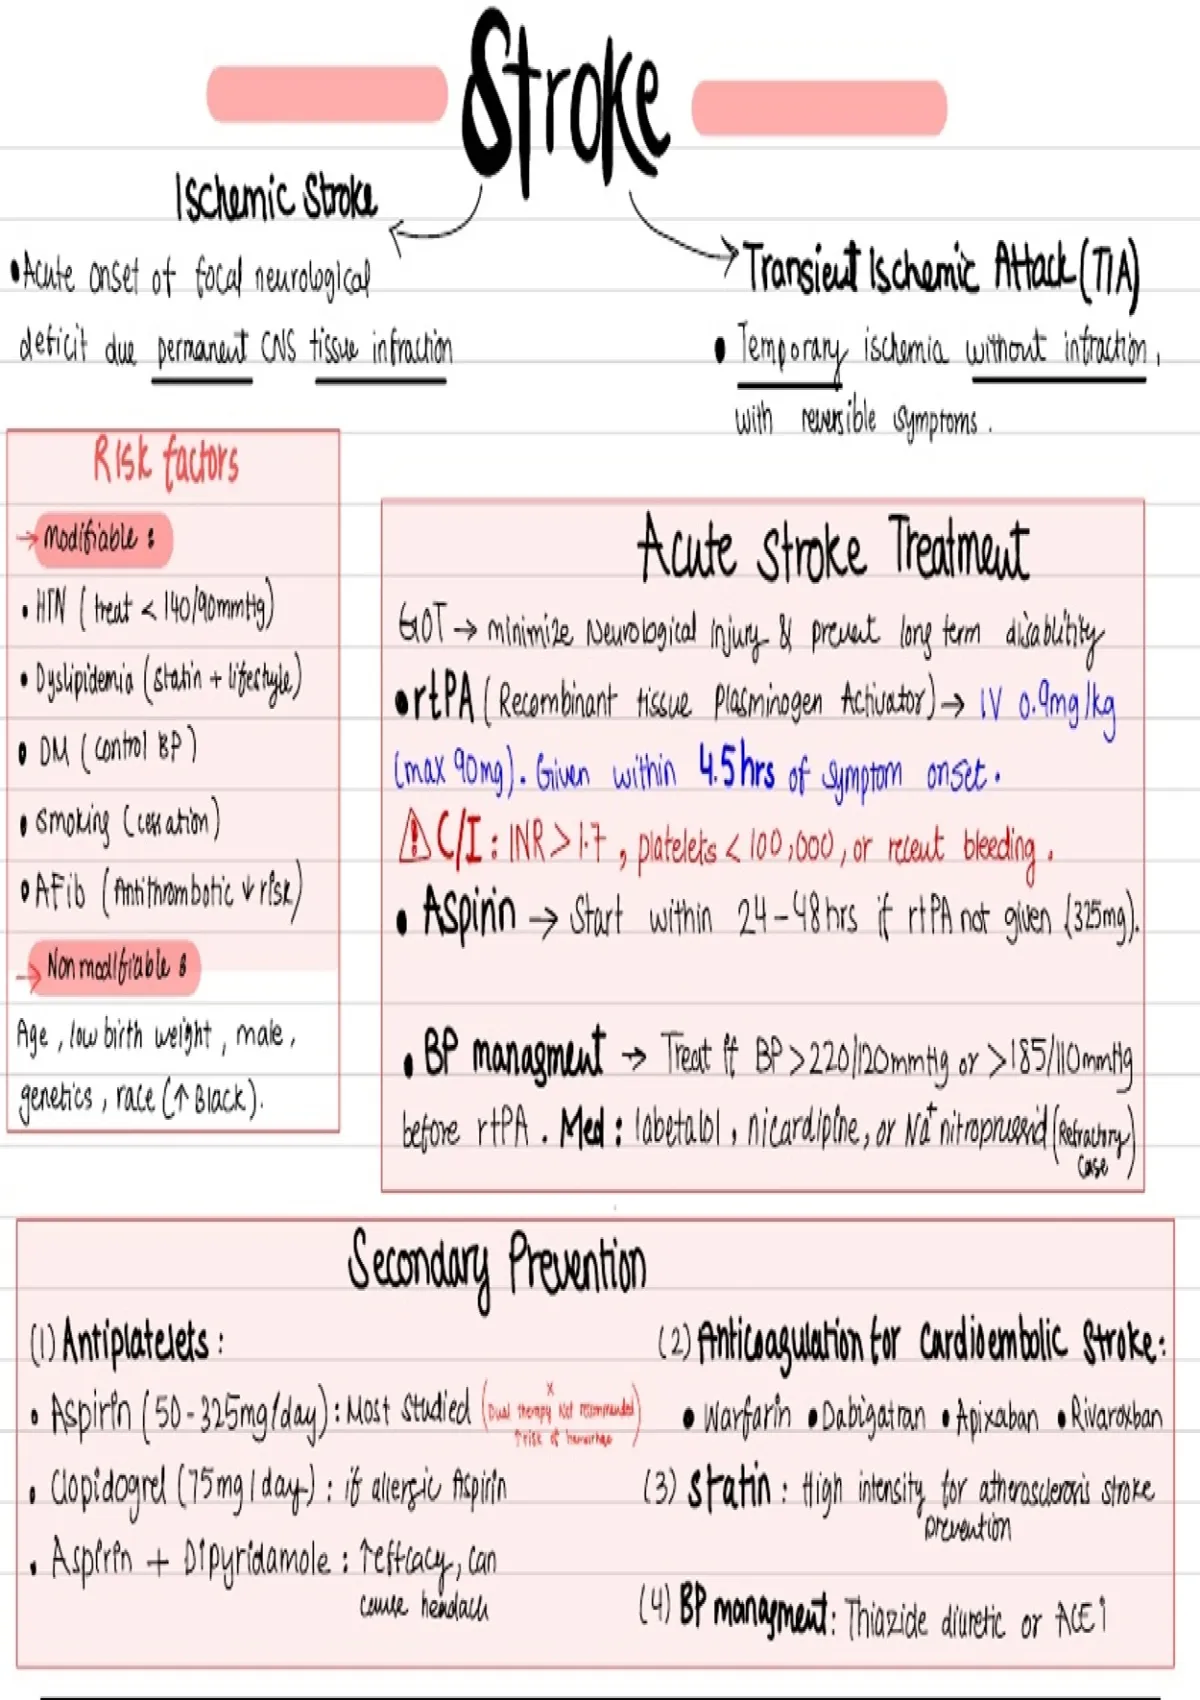 Stroke
Ischemic Stroke
• Acute onset of focal neurological
deficit due permanent CNS tissue infraction
Transient Ischemic Attack (TIA)
• Temporary ischemia without infraction,
with reversible symptoms.
Risk factors
→ Modifiable :
• HTN ( treat < 140/90mmHg)
• Dyslipidemia (statin + lifestyle)
• DM ( control BP )
• Smoking (cessation)
• AFib (Antithrombotic ↓ risk)
→ Non modifiable :
Age , low birth weight , male ,
genetics , race (↑ Black).
Acute Stroke Treatment
GOT → minimize Neurological Injury & prevent long term disablitity
• rtPA ( Recombinant tissue Plasminogen Activator) → IV 0.9mg/kg
(max 90mg). Given within 4.5hrs of symptom onset.
⚠ C/I : INR > 1.7 , platelets < 100,000, or recent bleeding .
• Aspirin → Start within 24-48hrs if rtPA not given (325mg).
• BP managment → Treat if BP >220/120mmHg or >185/110mmHg
before rtPA . Med : labetalol , nicardipine, or Na⁺ (Refractory
case)
Secondary Prevention
(1) Antiplatelets :
• Aspirin (50-325mg/day) : Most Studied (Dual therapy Not recommended
↑risk of hemorrhage)
• Clopidogrel (75mg/day) : if allergic Aspirin
• Aspirin + Dipyridamole : ↑efficacy, can
cause headach
(2) Anticoagulation for Cardioembolic Stroke :
• Warfarin • Dabigatran • Apixaban • Rivaroxban
(3) Statin : High intensity for atherosclerosis stroke
prevention
(4) BP managment : Thiazide diuretic or ACEI